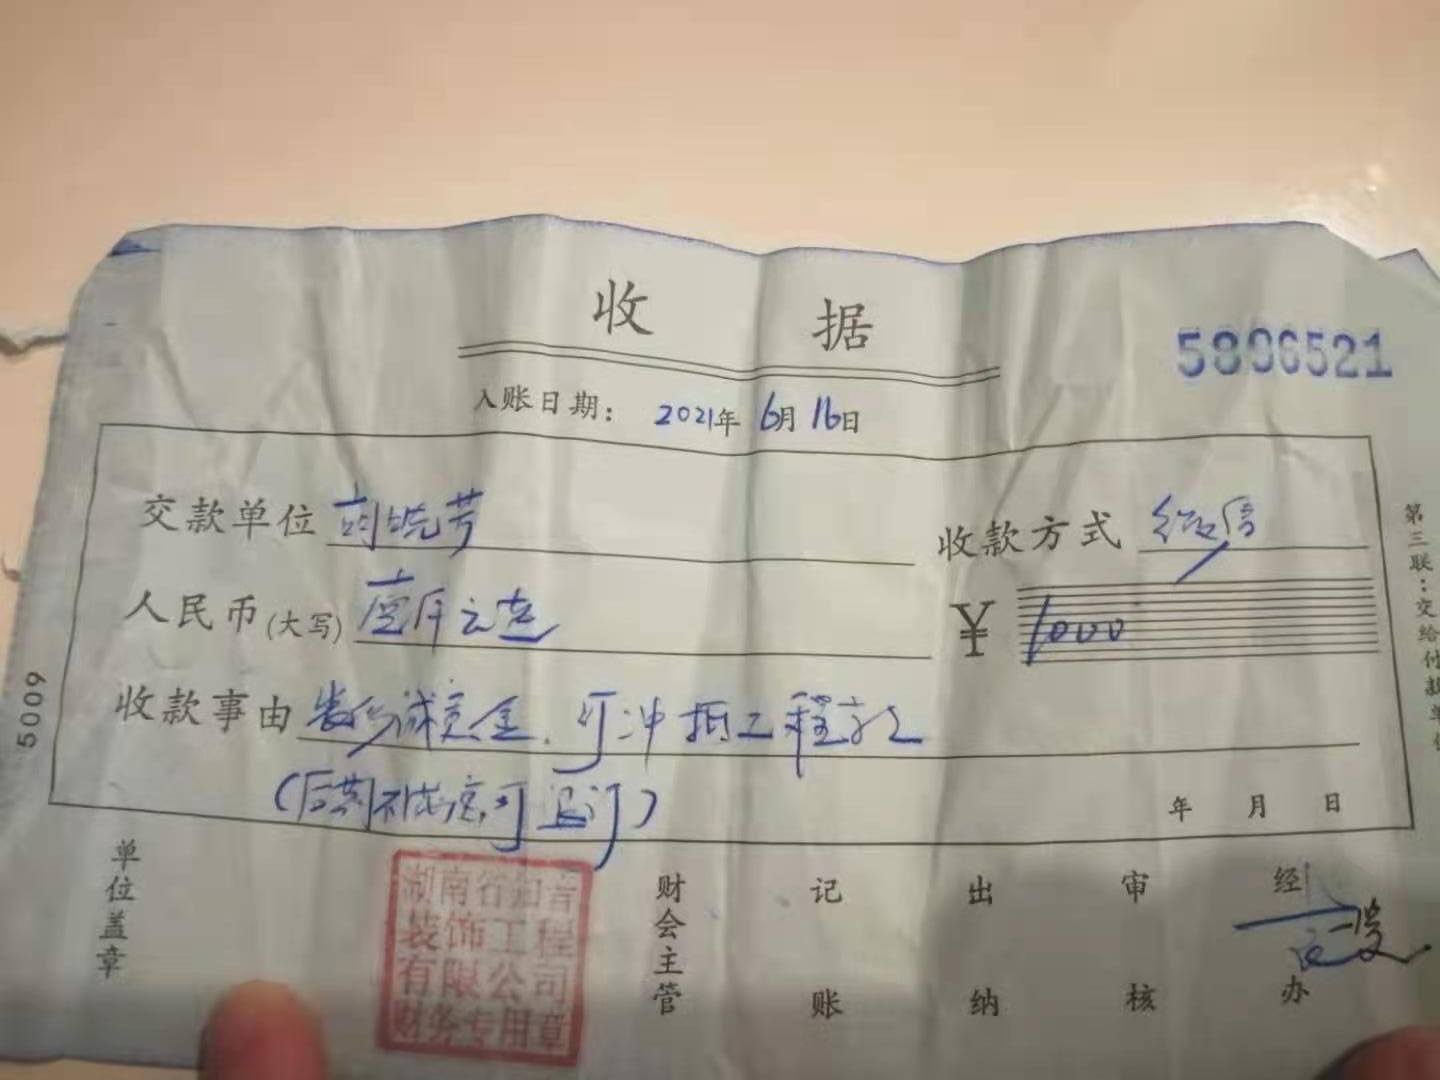 收 据
5896521
入账日期: 2021年 6月 16日
交款单位 刘皖芳
收款方式 微信
人民币(大写) 壹仟元整
¥ 1000
收款事由 装修诚意金、可冲抵工程款
(后期不满意,可退订)
年 月 日
单位盖章
湖南省知音
装饰工程
有限公司
财务专用章
财会主管
记账
出纳
审核
经办
第三联:交给付款单位
5009